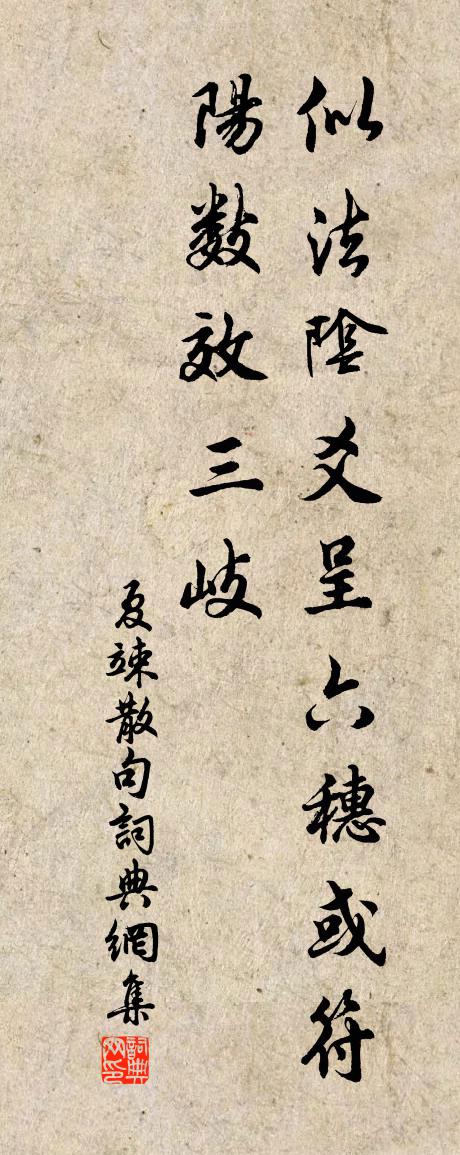 似法陰爻呈六穗或符
陽數效三歧
夏竦散句詞典網集
詞典網印